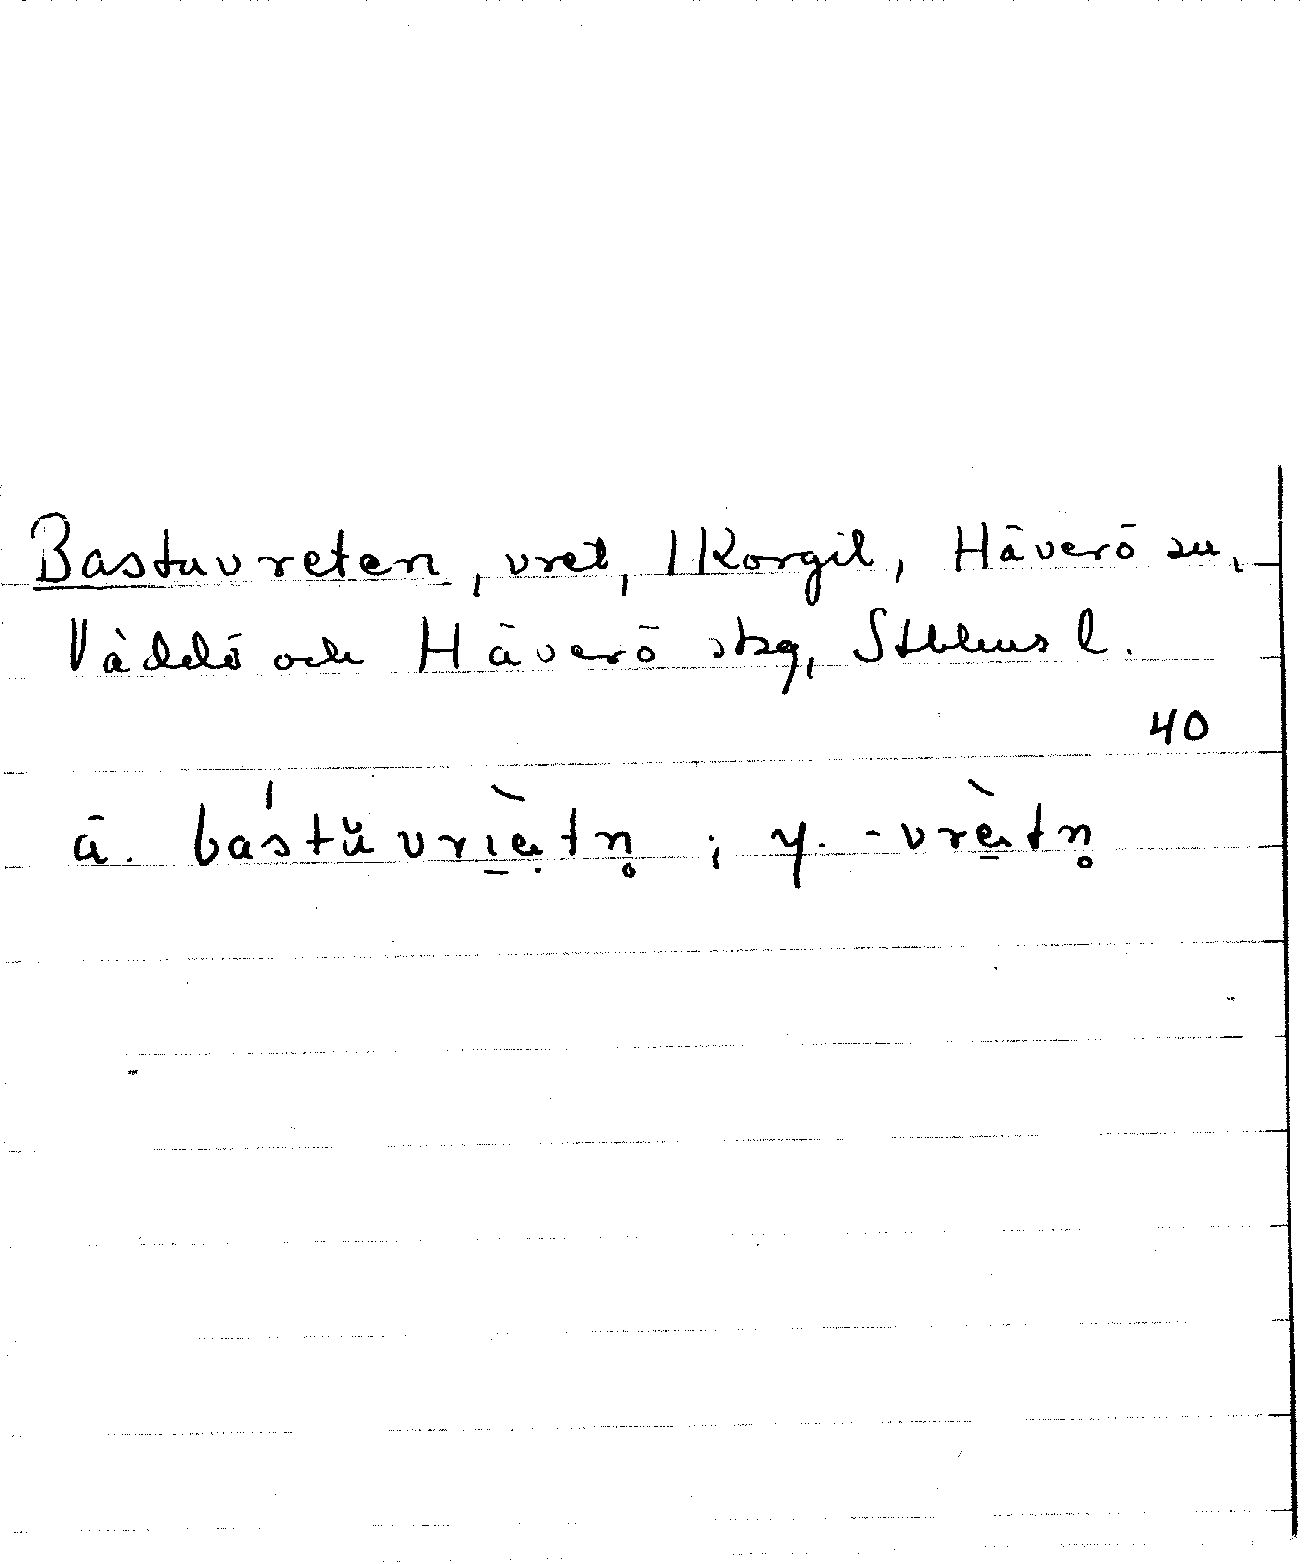 Bastuvreten, vret, Korgil, Häverö sn,
Väddö och Häverö skg, Sthlms l.
40
ä. bástŭvrìetn̥ ; y. -vrètn̥